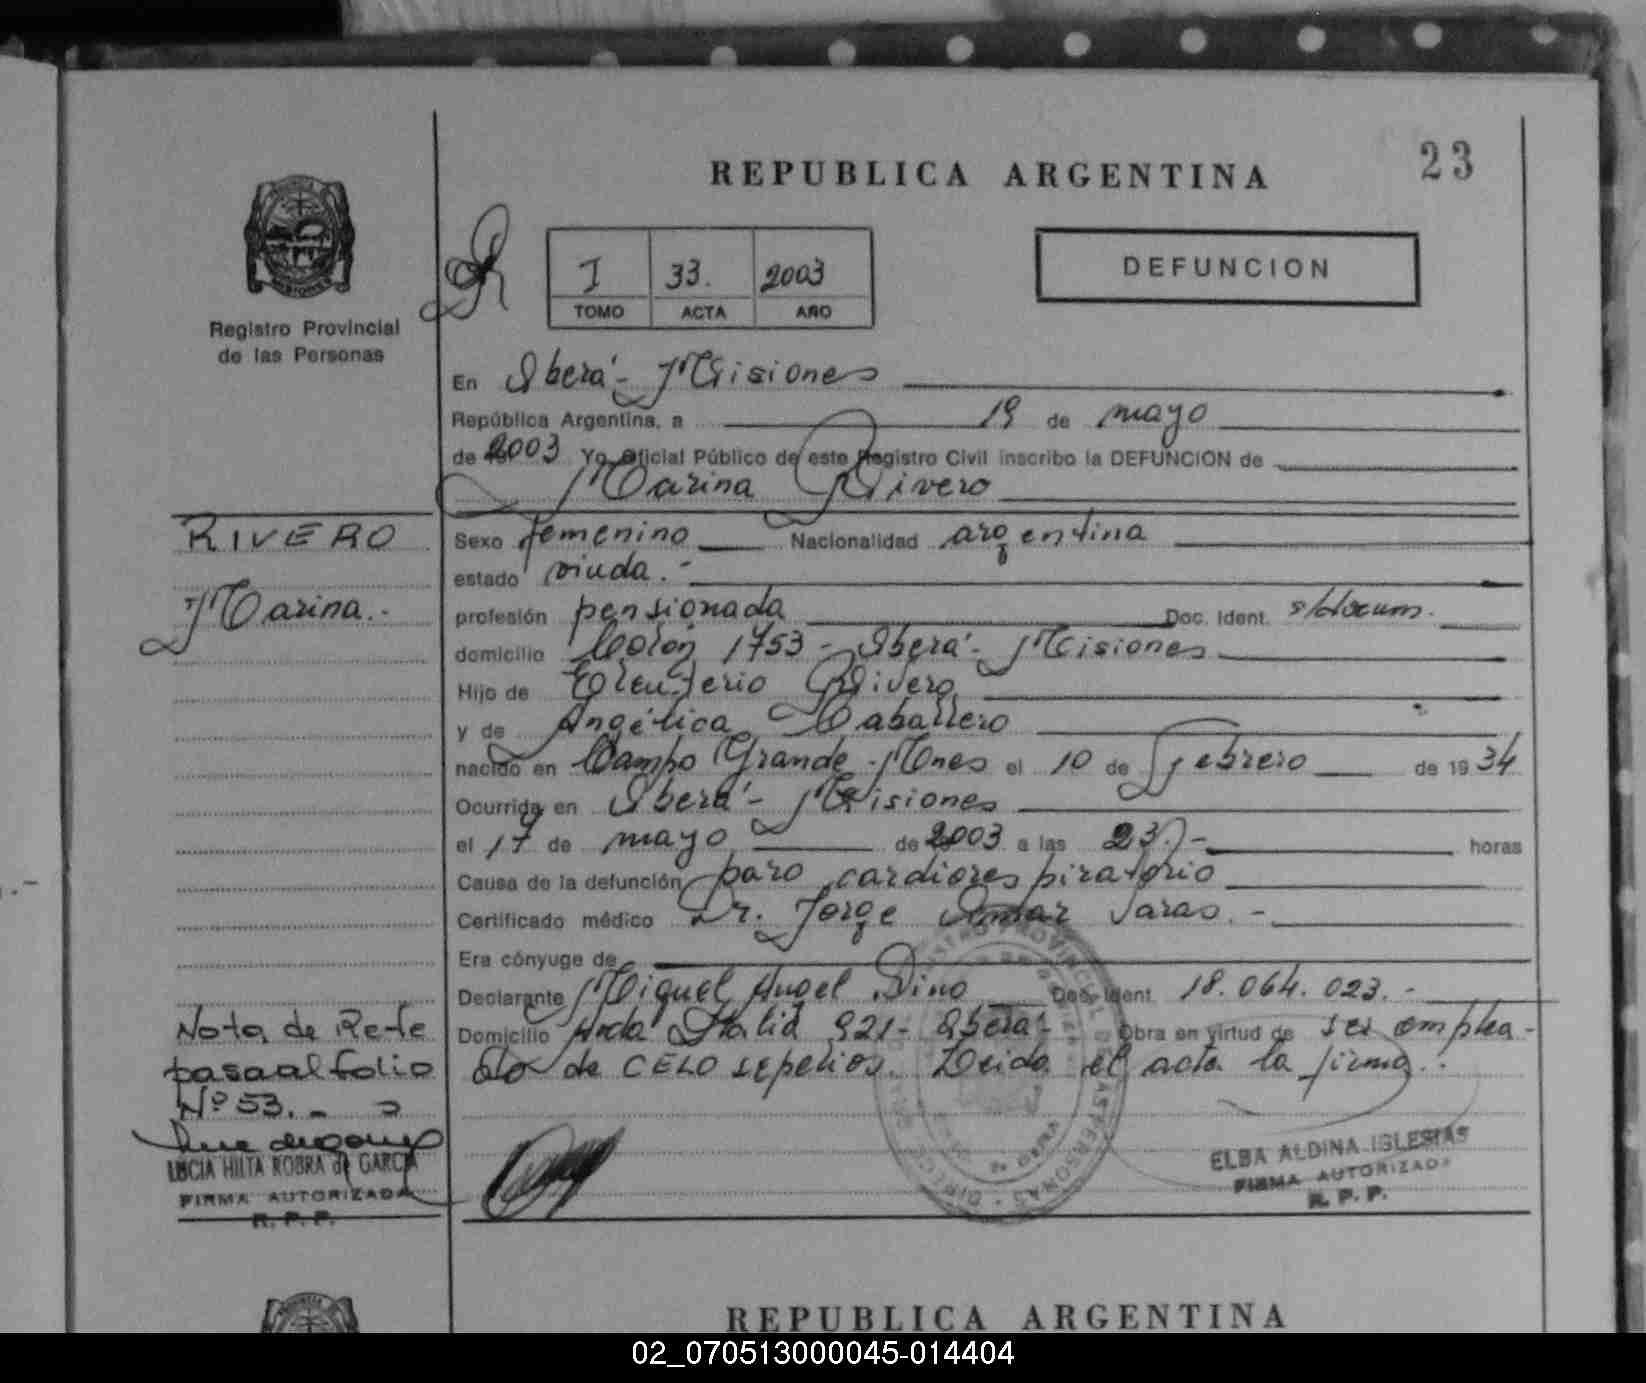 REPUBLICA ARGENTINA
23
I 33. 2003
TOMO ACTA AÑO
DEFUNCION
PROVINCIA
MISIONES
Registro Provincial
de las Personas
En Oberá - Misiones
República Argentina, a 19 de mayo
de 2003 Yo Oficial Público de este Registro Civil inscribo la DEFUNCION de
Marina Rivero
RIVERO
Marina.-
Sexo femenino Nacionalidad argentina
estado viuda.-
profesión pensionada Doc. Ident. s/docum.
domicilio Colón 1753 - Oberá - Misiones
Hijo de Eleuterio Rivero
y de Angélica Caballero
nacido en Campo Grande - Mnes el 10 de Febrero de 1934
Ocurrida en Oberá - Misiones
el 17 de mayo de 2003 a las 23.- horas
Causa de la defunción paro cardiorespiratorio
Certificado médico Dr. Jorge Omar .-
Era cónyuge de
Declarante Miguel Angel Dino Doc. Ident. 18.064.023.-
Domicilio Avda Italia 921 - Oberá - Obra en virtud de ser emplea-
do de CELO sepelios. Leida el acta la firma.-
Nota de Refe
pasa al folio
Nº 53.-
LUCIA HILTA ROBRA de GARCIA
FIRMA AUTORIZADA
R. P. P.
ELBA ALDINA IGLESIAS
FIRMA AUTORIZADA
R. P. P.
REPUBLICA ARGENTINA
02_070513000045-014404